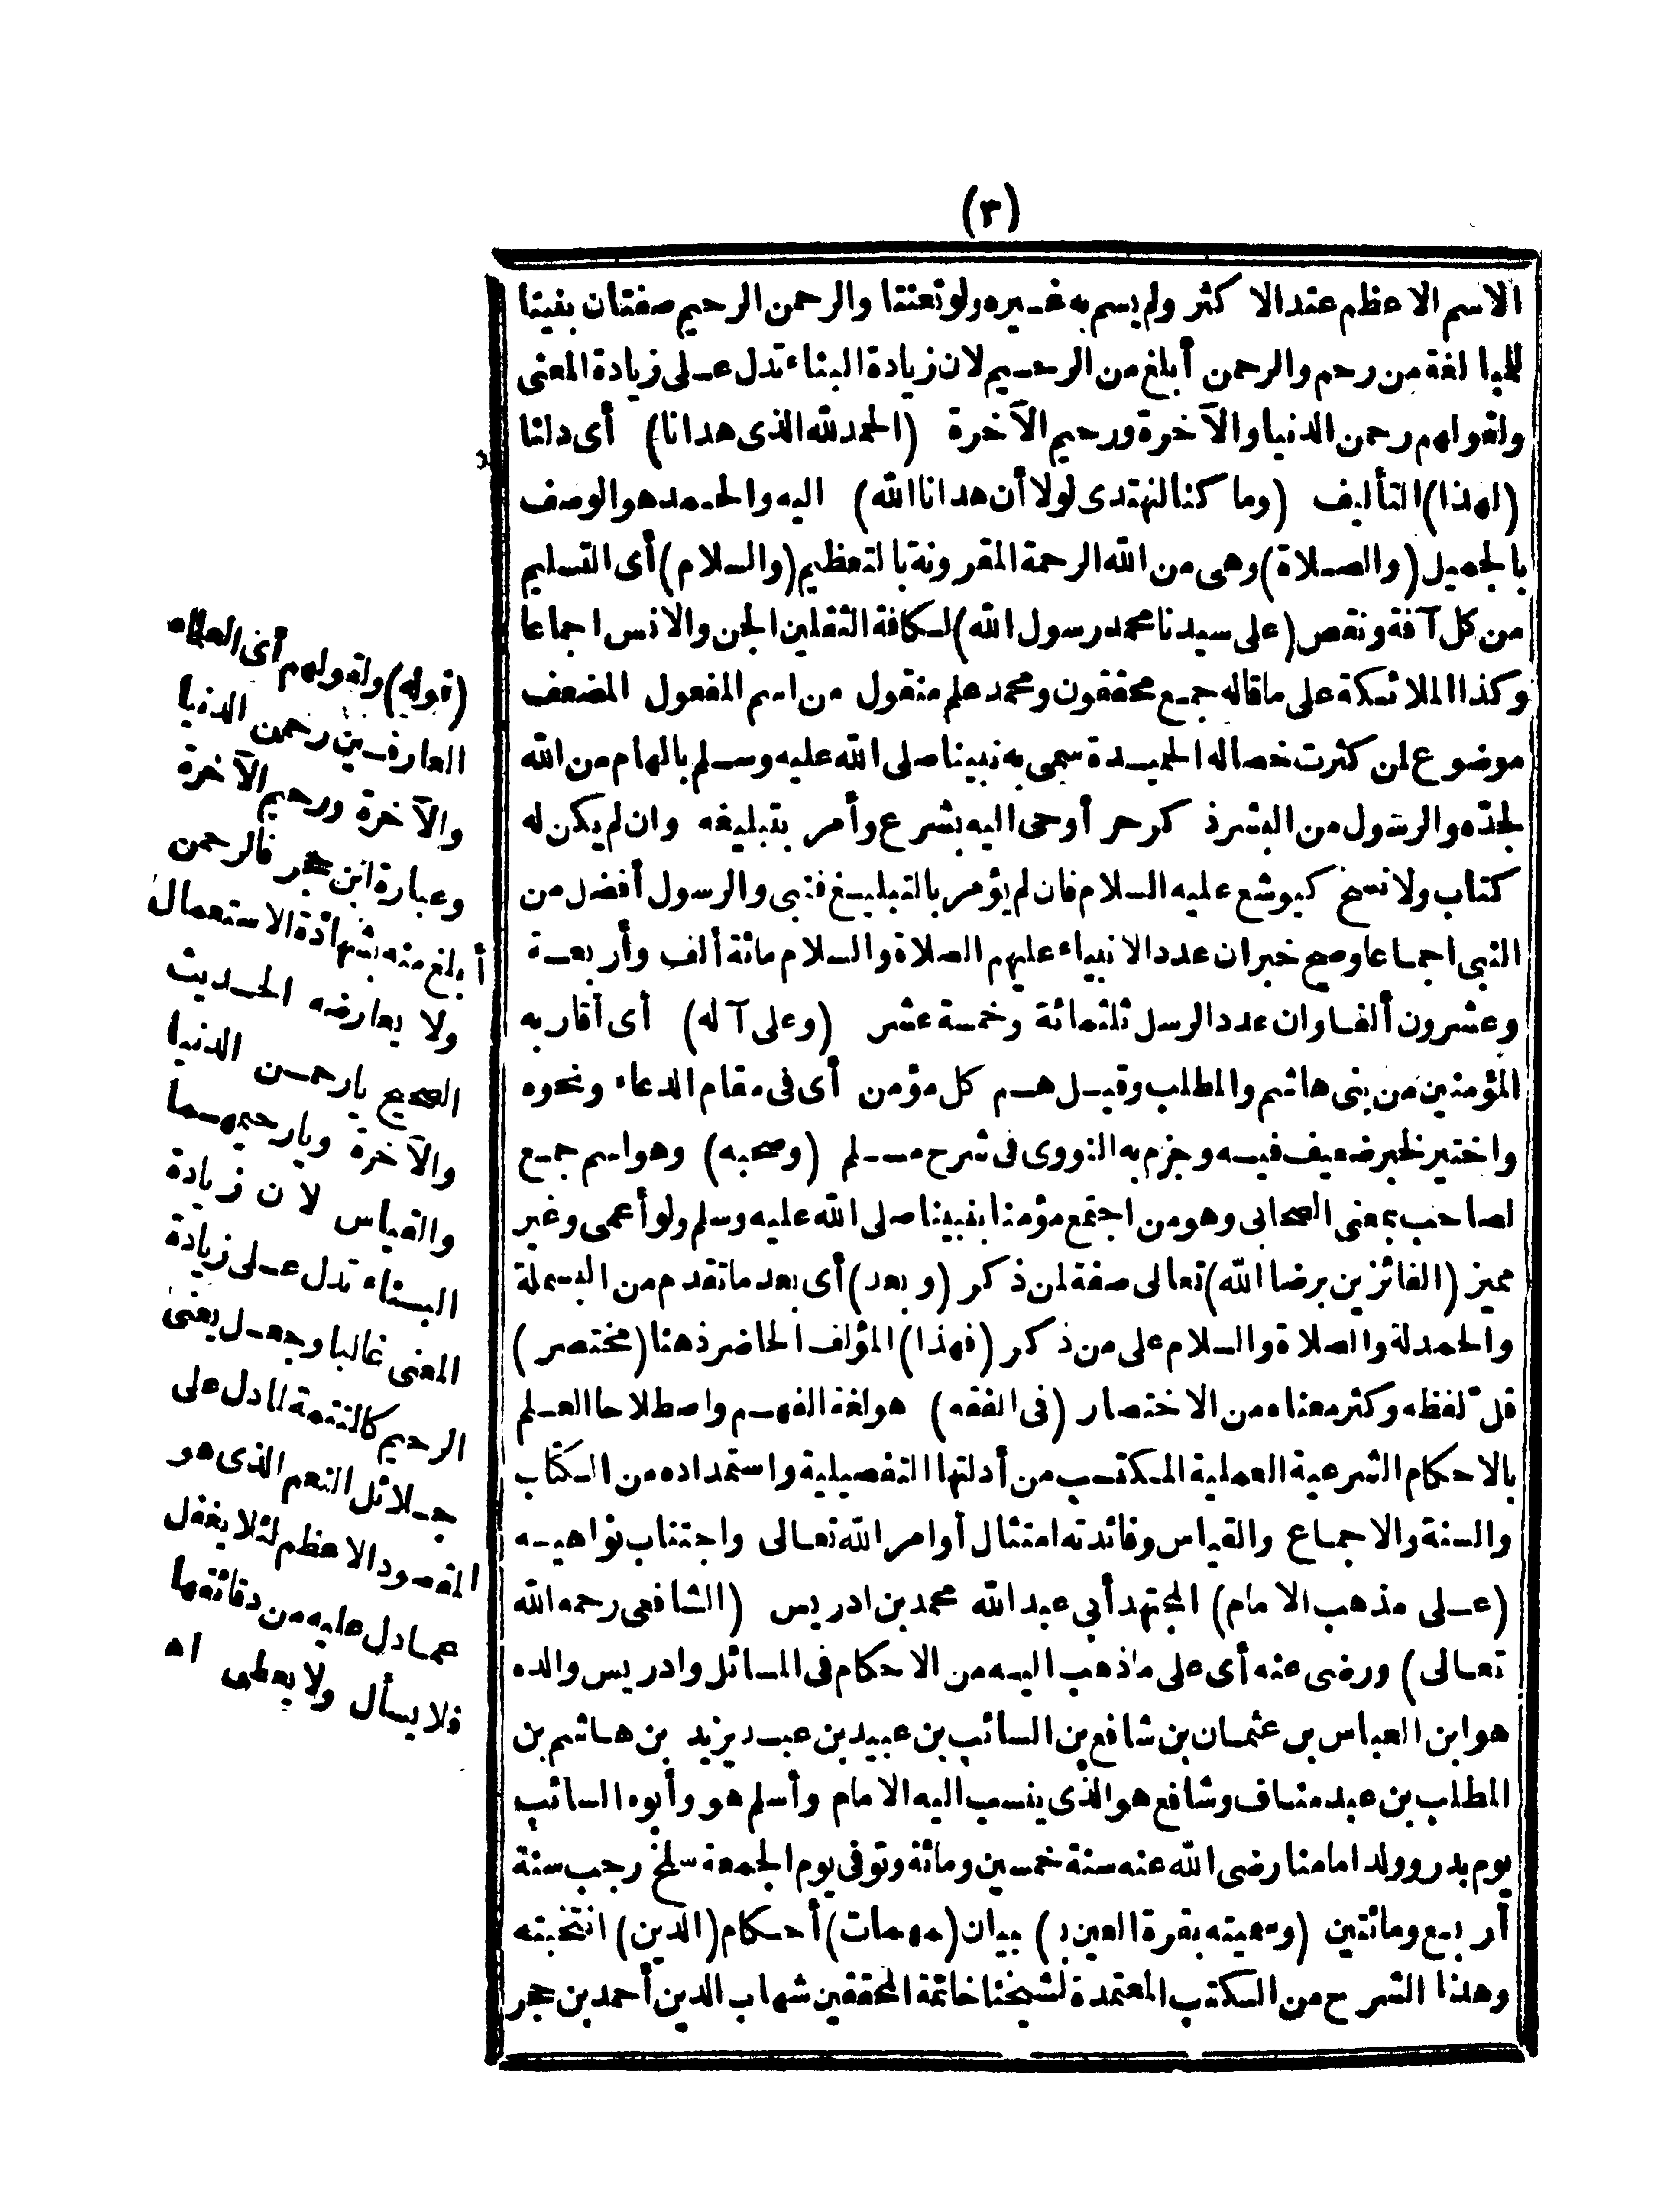 (٣)
الاسم الاعظم عند الاكثر ولم يسم به غيره ولو تعنتا والرحمن الرحيم صفتان بنيتا
للمبالغة من رحم والرحمن أبلغ من الرحيم لان زيادة البناء تدل على زيادة المعنى
ولقولهم رحمن الدنيا والآخرة ورحيم الآخرة (الحمد لله الذى هدانا) أى دلنا
(لهذا) التأليف (وما كنا لنهتدى لولا أن هدانا الله) اليه والحمد هو الوصف
بالجميل (والصلاة) وهى من الله الرحمة المقرونة بالتعظيم (والسلام) أى التسليم
من كل آفة ونقص (على سيدنا محمد رسول الله) لكافة الثقلين الجن والانس اجماعا
وكذا الملائكة على ما قاله جمع محققون ومحمد علم منقول من اسم المفعول المضعف
موضوع لمن كثرت خصاله الحميدة سمى به نبينا صلى الله عليه وسلم بالهام من الله
لجدّه والرسول من البشر ذكر حر أوحى اليه بشرع وأمر بتبليغه وان لم يكن له
كتاب ولا نسخ كيوشع عليه السلام فان لم يؤمر بالتبليغ فنبى والرسول أفضل من
النبى اجماعا وصح خبر ان عدد الانبياء عليهم الصلاة والسلام مائة ألف وأربعة
وعشرون ألفا وان عدد الرسل ثلثمائة وخمسة عشر (وعلى آله) أى أقاربه
المؤمنين من بنى هاشم والمطلب وقيل هم كل مؤمن أى فى مقام الدعاء ونحوه
واختير لخبر ضعيف فيه وجزم به النووى فى شرح مسلم (وصحبه) وهو اسم جمع
لصاحب بمعنى الصحابى وهو من اجتمع مؤمنا بنبينا صلى الله عليه وسلم ولو أعمى وغير
مميز (الفائزين برضا الله) تعالى صفة لمن ذكر (وبعد) أى بعد ما تقدم من البسملة
والحمدلة والصلاة والسلام على من ذكر (فهذا) المؤلف الحاضر ذهنا (مختصر)
قلّ لفظه وكثر معناه من الاختصار (فى الفقه) هو لغة الفهم واصطلاحا العلم
بالاحكام الشرعية العملية المكتسب من أدلتها التفصيلية واستمداده من الكتاب
والسنة والاجماع والقياس وفائدته امتثال أوامر الله تعالى واجتناب نواهيه
(على مذهب الامام) المجتهد أبى عبد الله محمد بن ادريس (الشافعى رحمه الله
تعالى) ورضى عنه أى على ما ذهب اليه من الاحكام فى المسائل وادريس والده
هو ابن العباس بن عثمان بن شافع بن السائب بن عبيد بن عبد يزيد بن هاشم بن
المطلب بن عبد مناف وشافع هو الذى ينسب اليه الامام وأسلم هو وأبوه السائب
يوم بدر وولد امامنا رضى الله عنه سنة خمسين ومائة وتوفى يوم الجمعة سلخ رجب سنة
أربع ومائتين (وسميته بقرة العين ب) بيان (مهمات) أحكام (الدين) انتخبته
وهذا الشرح من الكتب المعتمدة لشيخنا خاتمة المحققين شهاب الدين أحمد بن حجر
(قوله) ولقولهم أى العلماء
العارفين رحمن الدنيا
والآخرة ورحيم الآخرة
وعبارة ابن حجر فالرحمن
أبلغ منه بشهادة الاستعمال
ولا يعارضه الحديث
الصحيح يا رحمن الدنيا
والآخرة ويا رحيمهما
والقياس لان زيادة
البناء تدل على زيادة
المعنى غالبا وجعل يعنى
الرحيم كالتتمة لما دل على
جلائل النعم الذى هو
المقصود الاعظم لئلا يغفل
عما دل عليه من دقائقها
فلا يسأل ولا يعطى اه